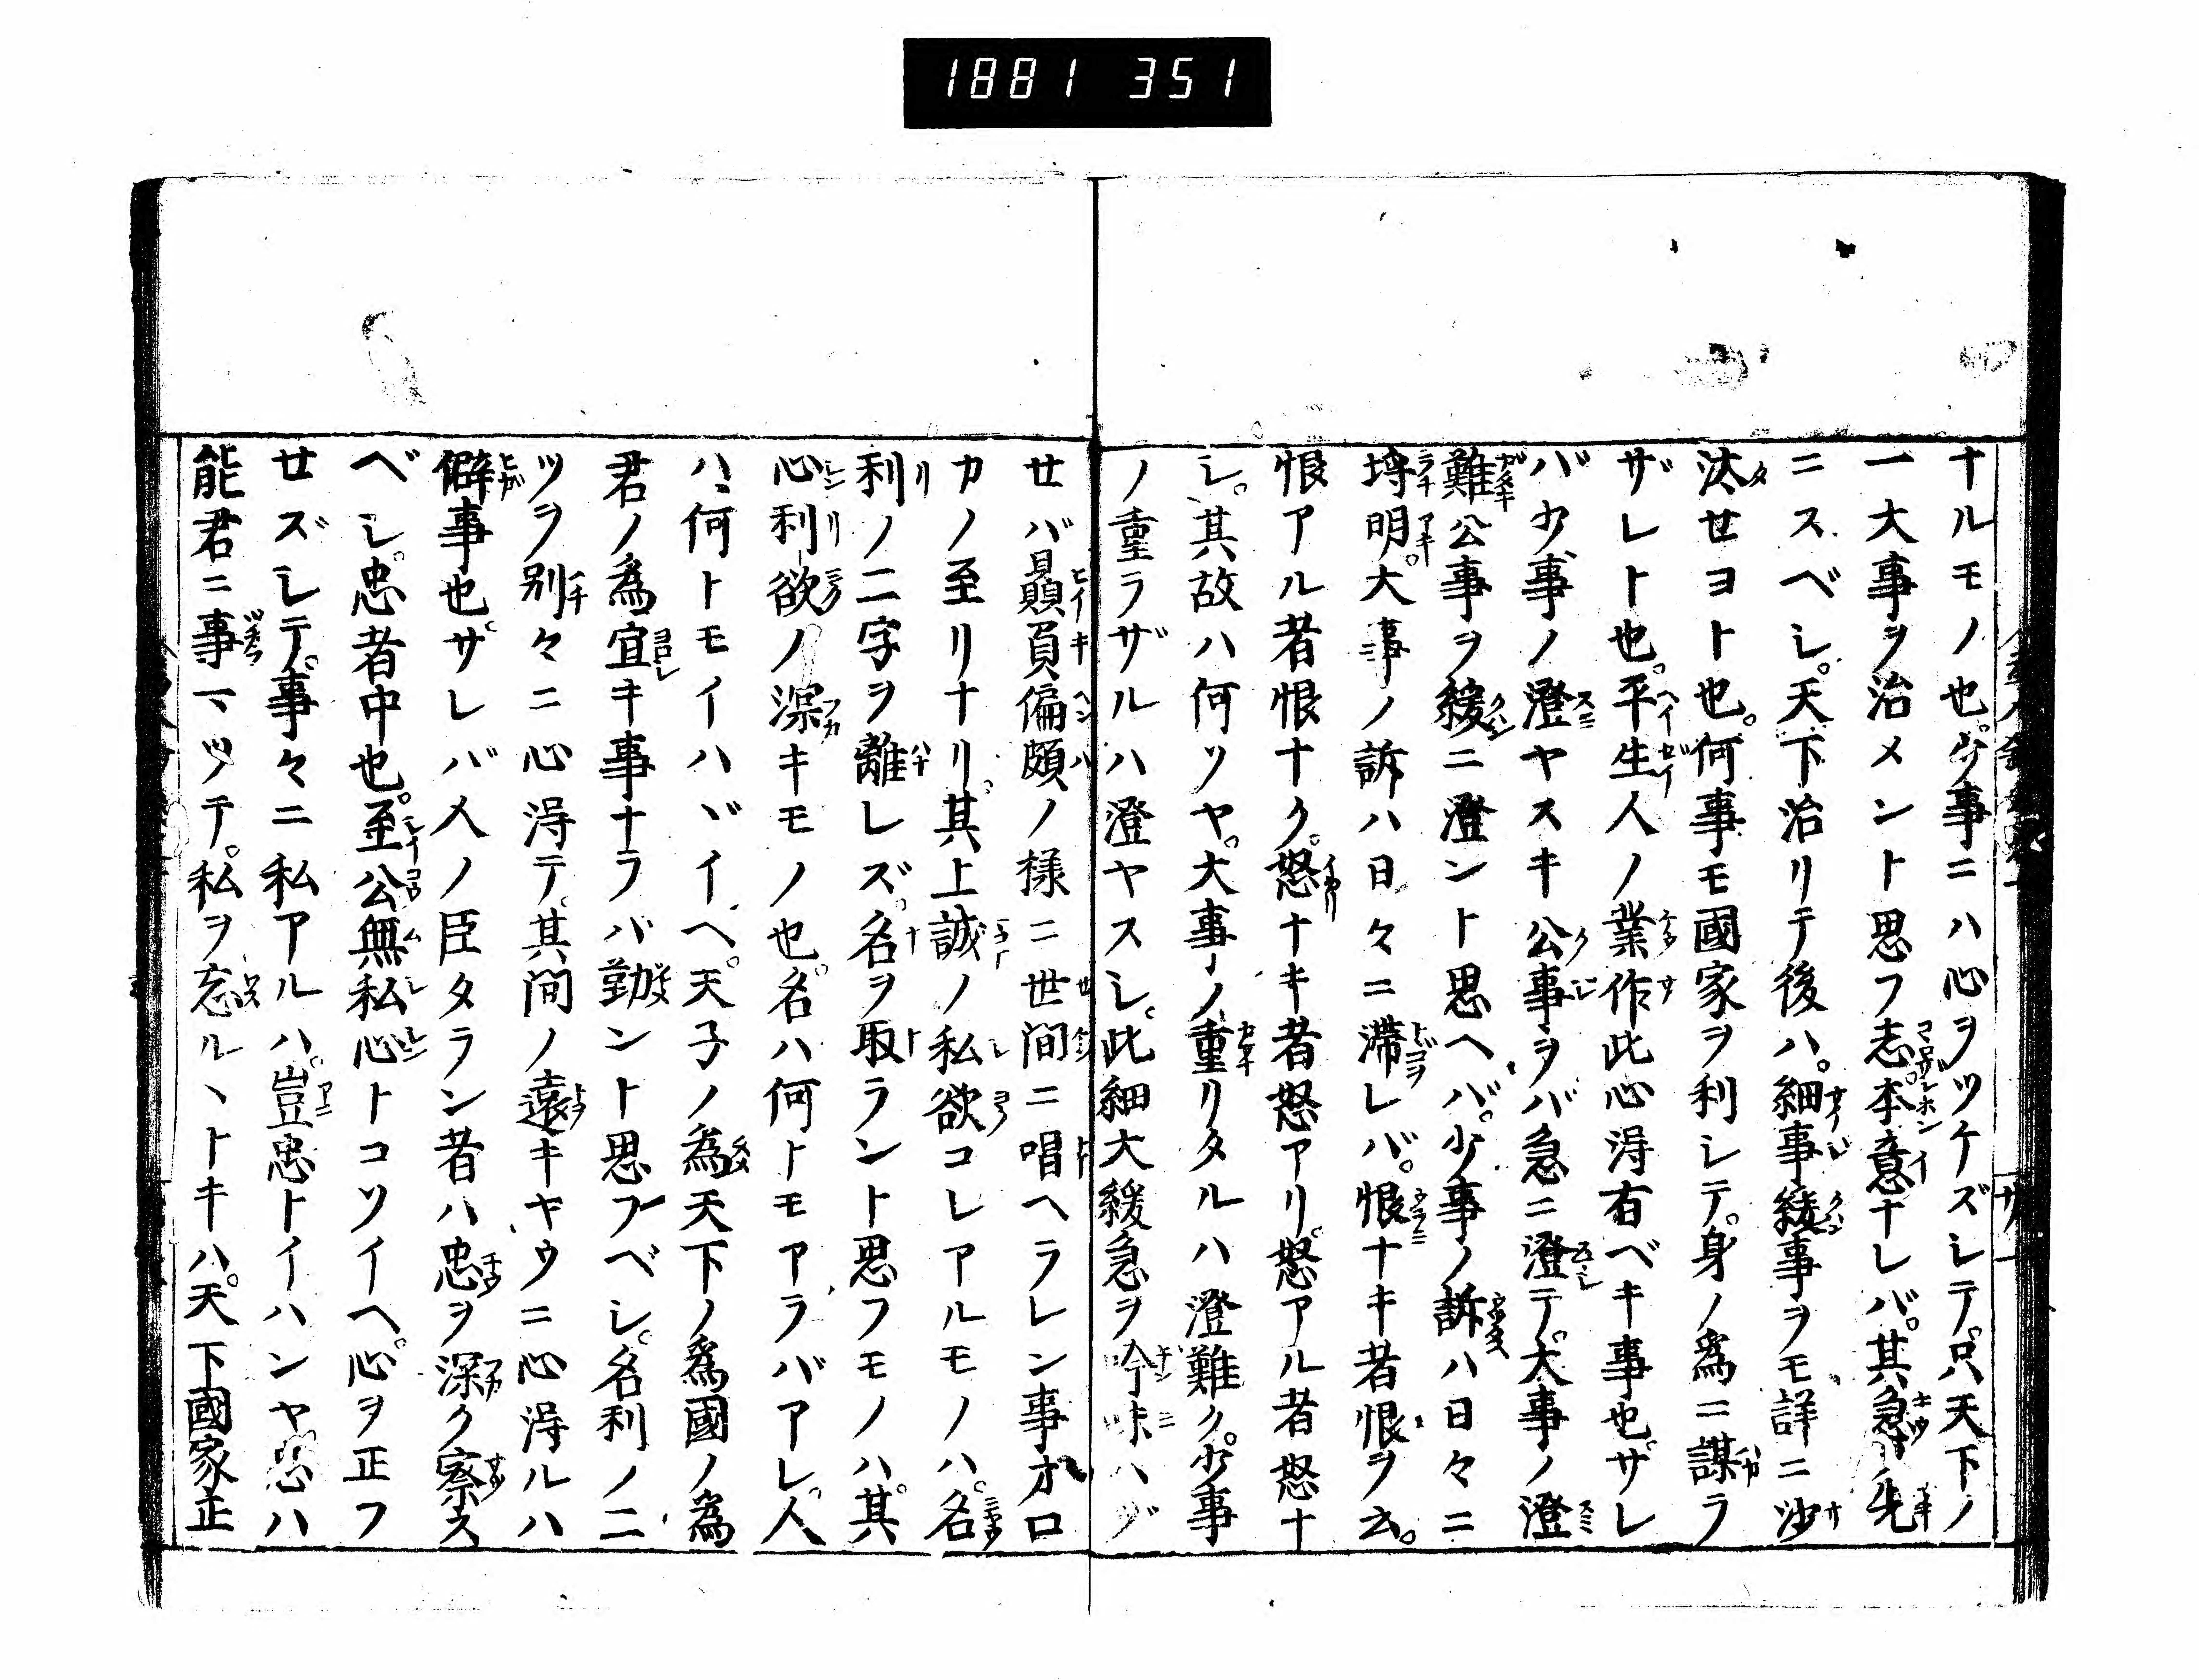 1881 351
ナルモノ也。少事ニハ心ヲツケズシテ。只天下ノ
一大事ヲ治メント思フ志。本意ナレバ。其急ヲ先
ニスベシ。天下治リテ後ハ。細事緩事ヲモ詳ニ沙
汰セヨト也。何事モ國家ヲ利シテ。身ノ爲ニ謀ラ
ザレト也。平生人ノ業作此心得有ベキ事也。サレ
バ少事ノ澄ヤスキ公事ヲバ急ニ澄テ。大事ノ澄
難公事ヲ緩ニ澄ント思ヘバ。少事ノ訴ハ日々ニ
埒明。大事ノ訴ハ日々ニ滞レバ。恨ナキ者恨ヲ云。
恨アル者恨ナク。怒ナキ者怒アリ。怒アル者怒ナ
シ。其故ハ何ソヤ。大事ノ重リタルハ澄難ク。少事
ノ重ラザルハ澄ヤスシ。此細大緩急ヲ吟味ハヅ
セバ贔負偏頗ノ様ニ世間ニ唱ヘラレン事オロ
カノ至リナリ。其上誠ノ私欲コレアルモノハ。名
利ノ二字ヲ離レズ。名ヲ取ラント思フモノハ。其
心利欲ノ深キモノ也。名ハ何トモアラバアレ。人
ハ何トモイハヾイヘ。天子ノ為天下ノ爲國ノ爲
君ノ爲宜キ事ナラバ勤ント思フベシ。名利ノ二
ツヲ別々ニ心得テ。其間ノ遠キヤウニ心得ルハ
僻事也。サレバ人ノ臣タラン者ハ忠ヲ深ク察ス
ベシ。忠者中也。至公無私心トコソイヘ。心ヲ正フ
セズシテ。事々ニ私アルハ。豈忠トイハンヤ。忠ハ
能君ニ事マツテ。私ヲ忘ルヽトキハ。天下國家正